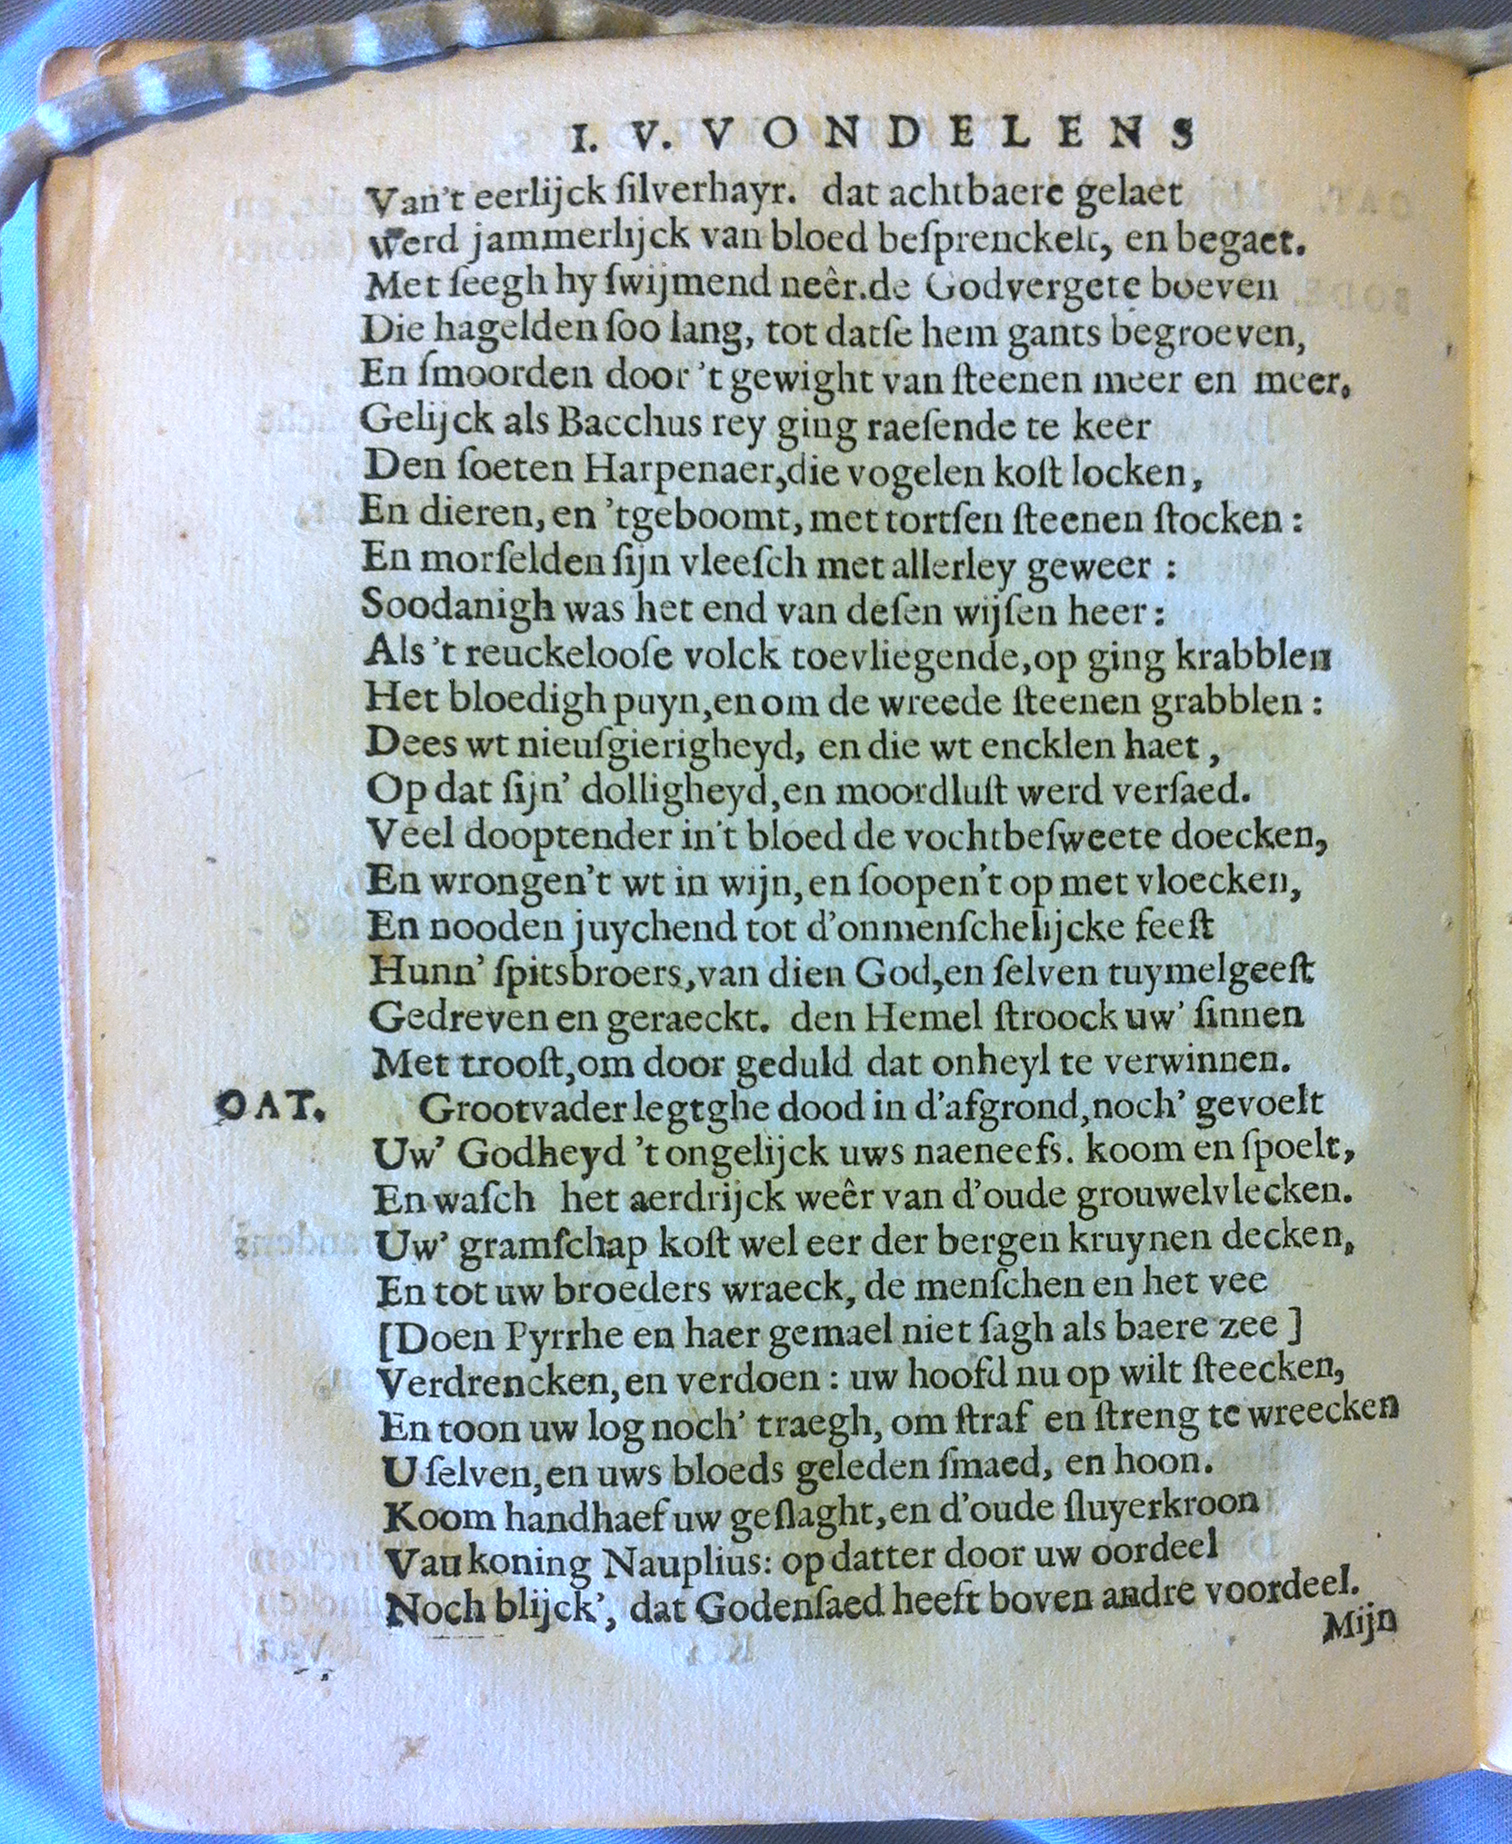 I. V. VONDELENS
Van't eerlijck ſilverhayr. dat achtbaere gelaet
Werd jammerlijck van bloed beſprenckelt, en begaet.
Met ſeegh hy ſwijmend neêr.de Godvergete boeven
Die hagelden ſoo lang, tot datſe hem gants begroeven,
En ſmoorden door 't gewight van ſteenen meer en meer.
Gelijck als Bacchus rey ging raeſende te keer
Den ſoeten Harpenaer,die vogelen koſt locken,
En dieren, en 'tgeboomt, met tortſen ſteenen ſtocken :
En morſelden ſijn vleeſch met allerley geweer :
Soodanigh was het end van deſen wijſen heer :
Als 't reuckelooſe volck toevliegende,op ging krabblen
Het bloedigh puyn,en om de wreede ſteenen grabblen :
Dees wt nieuſgierigheyd, en die wt encklen haet ,
Op dat ſijn' dolligheyd,en moordluſt werd verſaed.
Veel dooptender in't bloed de vochtbeſweete doecken,
En wrongen't wt in wijn,en ſoopen't op met vloecken,
En nooden juychend tot d'onmenſchelijcke feeſt
Hunn' ſpitsbroers,van dien God,en ſelven tuymelgeeſt
Gedreven en geraeckt. den Hemel ſtroock uw' ſinnen
Met trooſt,om door geduld dat onheyl te verwinnen.
OAT. Grootvader legtghe dood in d'afgrond,noch' gevoelt
Uw' Godheyd 't ongelijck uws naeneefs. koom en ſpoelt,
En waſch het aerdrijck weêr van d'oude grouwelvlecken.
Uw' gramſchap koſt wel eer der bergen kruynen decken,
En tot uw broeders wraeck, de menſchen en het vee
[Doen Pyrrhe en haer gemael niet ſagh als baere zee ]
Verdrencken,en verdoen : uw hoofd nu op wilt ſteecken,
En toon uw log noch' traegh, om ſtraf en ſtreng te wreecken
U ſelven,en uws bloeds geleden ſmaed, en hoon.
Koom handhaef uw geſlaght,en d'oude ſluyerkroon
Van koning Nauplius: op datter door uw oordeel
Noch blijck', dat Godenſaed heeft boven andre voordeel.
Mijn